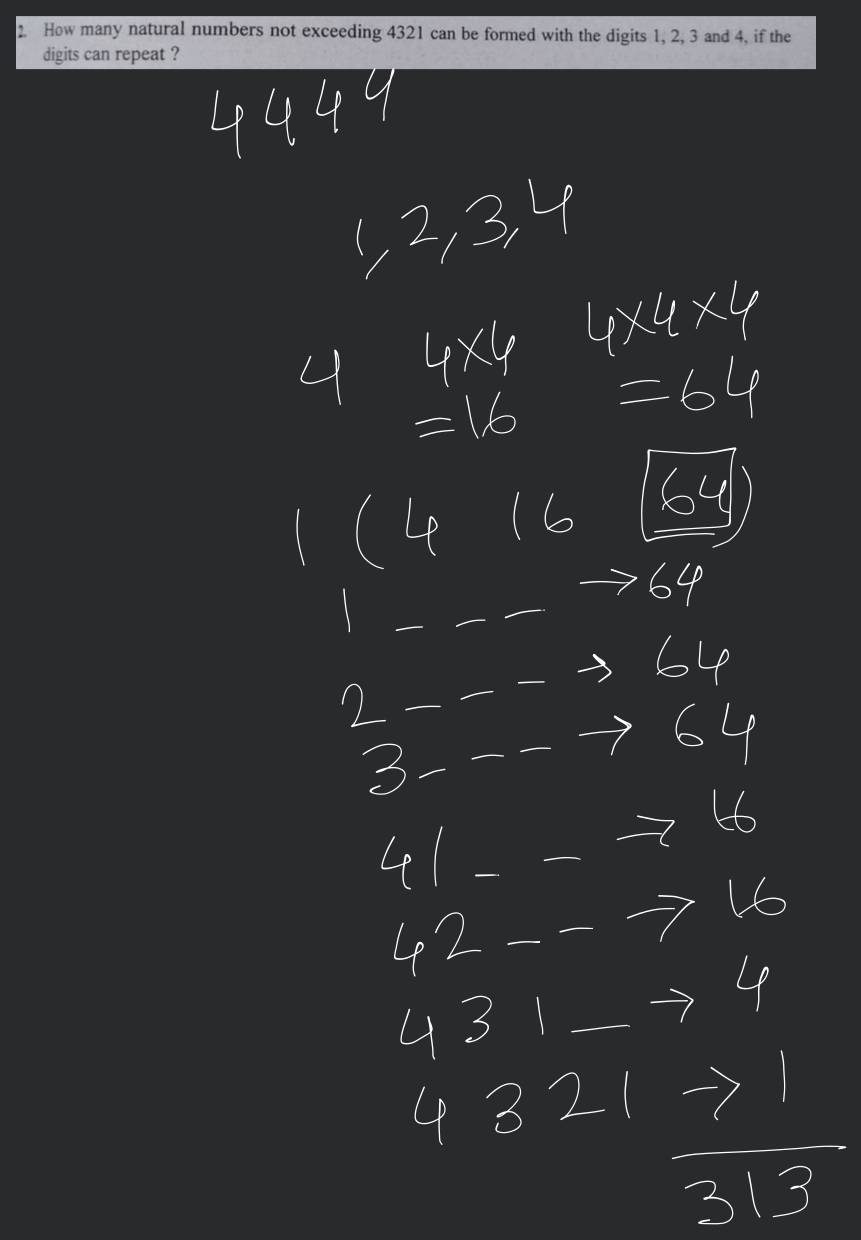 2. How many natural numbers not exceeding 4321 can be formed with the digits 1, 2, 3 and 4, if the
digits can repeat ?
4 4 4 4
1, 2, 3, 4
4 4×4 4×4×4
=16 =64
1 ( 4 16 64 )
1 _ _ _ → 64
2 _ _ _ → 64
3 _ _ _ → 64
41 _ _ → 16
42 _ _ → 16
431 _ → 4
4321 → 1
313